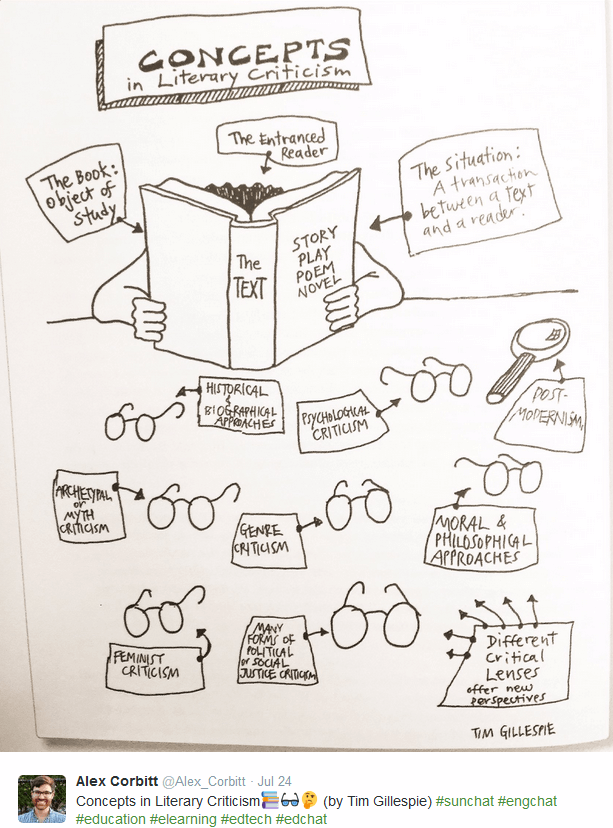 CONCEPTS
in Literary Criticism
The Entranced
Reader
The Book:
Object of
Study
The Situation:
A transaction
between a text
and a reader.
The
TEXT
STORY
PLAY
POEM
NOVEL
HISTORICAL
&
BIOGRAPHICAL
APPROACHES
PSYCHOLOGICAL
CRITICISM
POST-
MODERNISM
ARCHETYPAL
or
MYTH
CRITICISM
GENRE
CRITICISM
MORAL &
PHILOSOPHICAL
APPROACHES
FEMINIST
CRITICISM
MANY
FORMS OF
POLITICAL
or SOCIAL
JUSTICE CRITICISM
Different
Critical
Lenses
offer new
perspectives
TIM GILLESPIE
Alex Corbitt @Alex_Corbitt · Jul 24
Concepts in Literary Criticism📚👓🤔 (by Tim Gillespie) #sunchat #engchat
#education #elearning #edtech #edchat